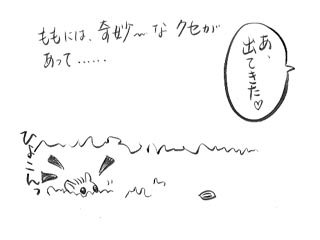 ももには、奇妙〜な クセが
あって……
あ、
出てきた♡
ひょこんっ